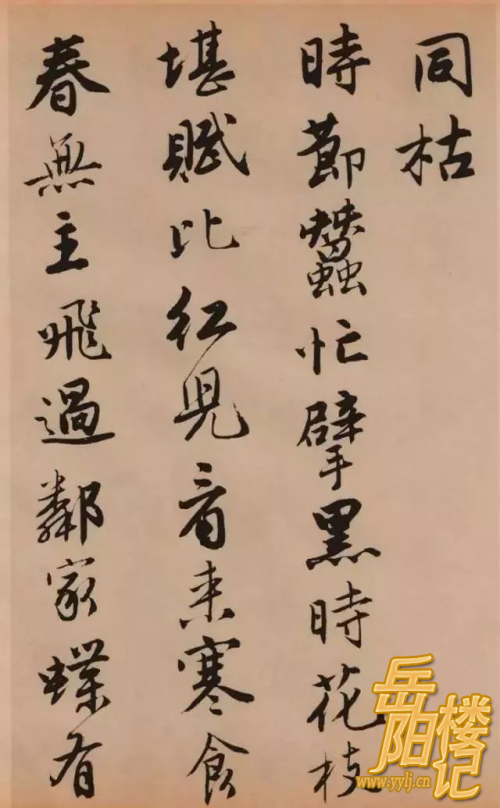 同枯
時節蠶忙擘黑時花枝
堪賦比紅兒看来寒食
春無主飛過鄰家蝶有
岳阳楼记
www.yylj.cn